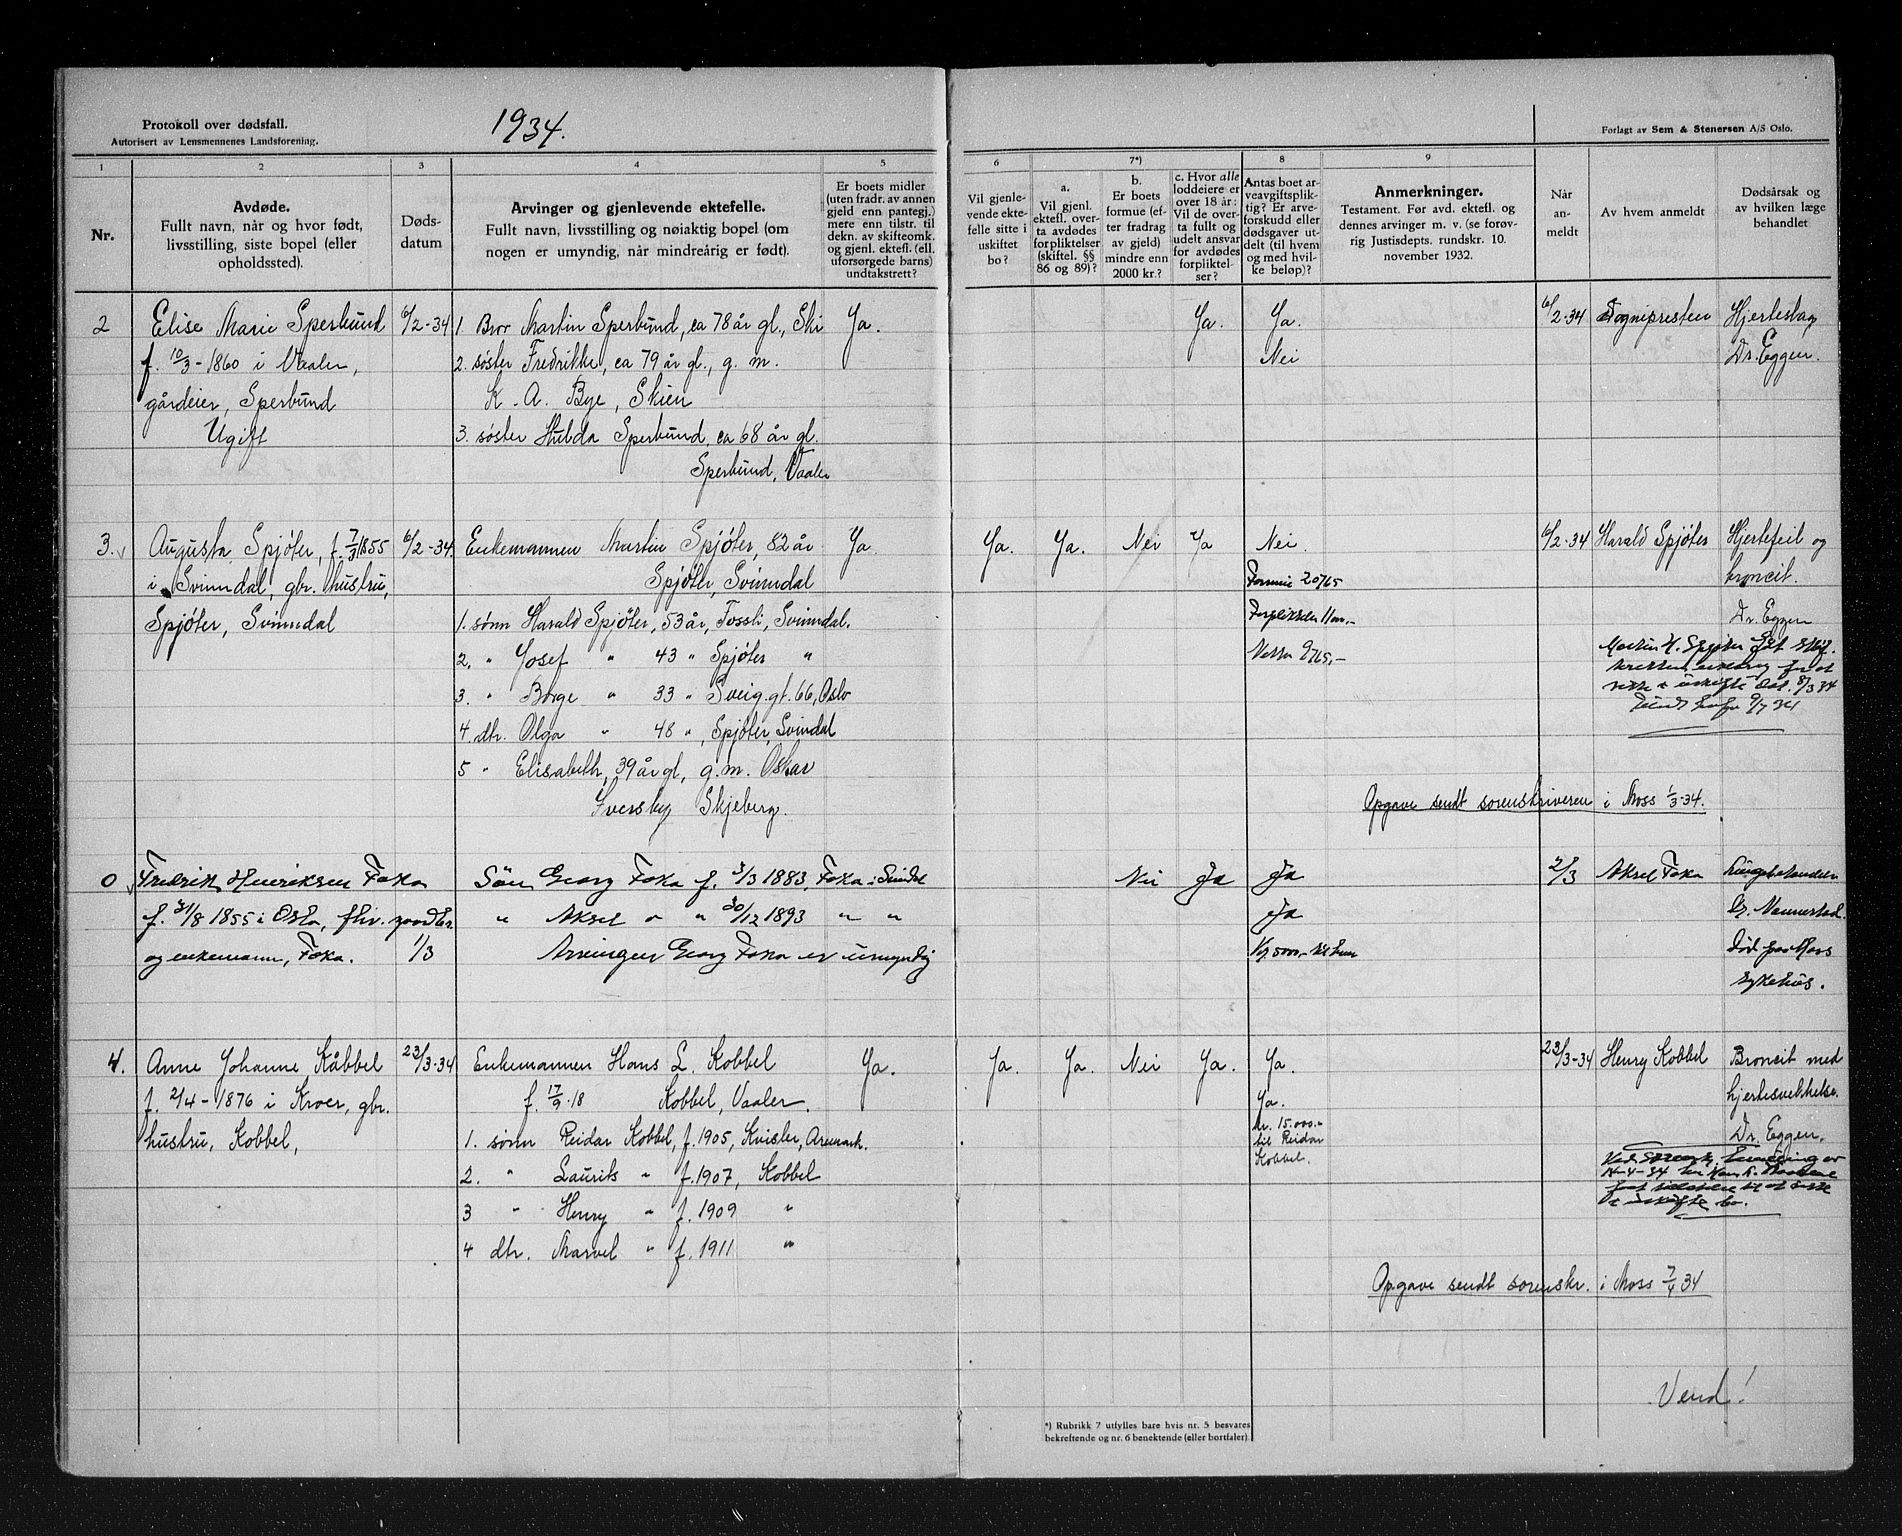 Protokoll over dødsfall.
Autorisert av Lensmennenes Landsforening.
1934.
Forlagt av Sem & Stenersen A/S Oslo.
1 2 3 4 5 6 7*) 8 9
Nr.
Avdøde.
Fullt navn, når og hvor født,
livsstilling, siste bopel (eller
opholdssted).
Døds-
datum
Arvinger og gjenlevende ektefelle.
Fullt navn, livsstilling og nøiaktig bopel (om
nogen er umyndig, når mindreårig er født).
Er boets midler
(uten fradr. av annen
gjeld enn pantegj.)
mere enn tilstr. til
dekn. av skifteomk.
og gjenl. ektef. (ell.
uforsørgede barns)
undtakstrett?
Vil gjenle-
vende ekte-
felle sitte i
uskiftet
bo?
a.
Vil gjenl.
ektefl. over-
ta avdødes
forpliktelser
(skiftel. §§
86 og 89)?
b.
Er boets
formue (ef-
ter fradrag
av gjeld)
mindre enn
2000 kr.?
c. Hvor alle
loddeiere er
over 18 år:
Vil de over-
ta fullt og
udelt ansvar
for avdødes
forpliktel-
ser?
Antas boet ar-
veavgiftsplik-
tig? Er arve-
forskudd eller
dødsgaver ut-
delt (til hvem
og med hvil-
ke beløp)?
Anmerkninger.
Testament. Før avd. ektefl. og
dennes arvinger m. v. (se forøv-
rig Justisdepts. rundskr. 10.
november 1932.
Når
an-
meldt
Av hvem anmeldt
Dødsårsak og
av hvilken læge
behandlet
2 Elise Marie Sperbund 6/2-34 1. Bror Martin Sperbund, ca 78 år gl., Ski Ja. Ja. Ja. 6/2-34 Sognepresten Hjerteslag
f. 10/3-1860 i Vaaler, 2. søster Fredrikke, ca 79 år gl., g. m. Nei Dr. Eggen.
gårdeier, Sperbund K. A. Bye, Skien
Ugift 3. søster Hulda Sperbund, ca 68 år gl.
Sperbund, Vaaler
3. Augusta Spjøter, f. 7/3 1855 6/2-34. Enkemannen Martin Spjøter, 82 år Ja Ja. Ja. Nei Ja Nei. 6/2-34 Harald Spjøter Hjertefeil og
i Svinndal, gbr. hustru, Spjøter, Svinndal Formue 20765 broncit.
Spjøter, Svinndal 1. sønn Harald Spjøter, 53 år, Fossli, Svinndal. Dr. Eggen
2. " Josef " 43 " Spjøter " Netto 9765,-
3 " Borge " 33 " Sveig.gt. 66, Oslo
4. dtr. Olga " 48 ", Spjøter, Svindal
5 " Elisabeth, 39 år gl, g. m. Oskar
Skjeberg.
Opgave sendt sorenskriveren i Moss 1/3-34.
0 Fredrik Henriksen Foka Sön Georg Foka f. 3/3 1883, Foka i Svindal Nei Ja Ja 2/3 Aksel Foka
f. 31/8 1855 i Oslo, " Aksel " " 30/12 1893 " " Ja
og enkemann, Foka. 1/3 Arvingen Georg Foka er umyndig Død paa Moss
sykehus.
4. Anne Johanne Kåbbel 23/3-34 Enkemannen Hans L. Kobbel Ja. Ja. Ja. Nei Ja. Ja. 23/3-34 Henry Kobbel Broncit med
f. 2/4-1876 i Kroer, gbr. f. 17/9-18 Kobbel, Vaaler. Ja. hjertesvekkelse.
hustru, Kobbel, 1. sønn Reidar Kobbel, f. 1905, Kvister, Aremark. kr. 15.000.- Dr. Eggen.
til Reidar
Kobbel.
2. " Laurits " f. 1907, Kobbel
3 " Henry " f. 1909 "
4 dtr. Marvel " f. 1911 "
Opgave sendt sorenskr. i Moss 7/4 34
Vend!
*) Rubrikk 7 utfylles bare hvis nr. 5 besvares
bekreftende og nr. 6 benektende (eller bortfaler).